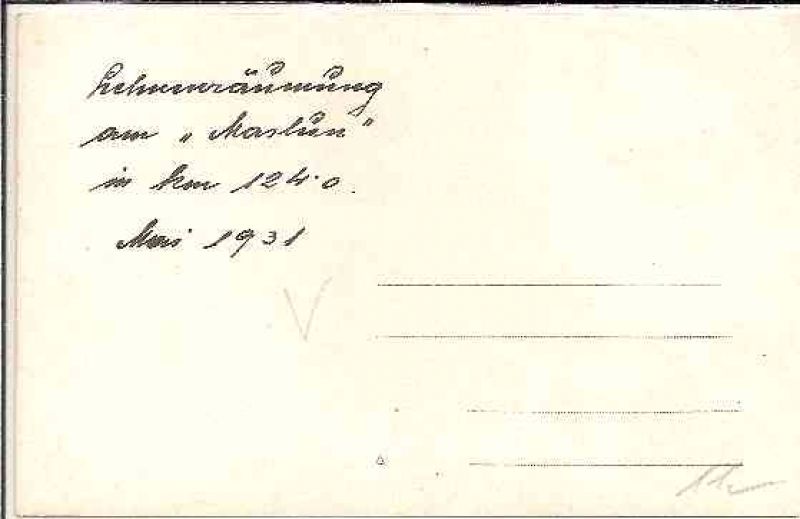 Lehnenräumung
am „Maslun“
in km 124·0.
Mai 1931